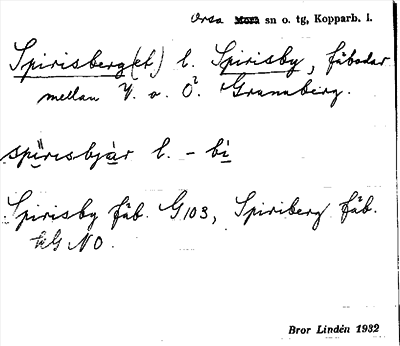 Orsa Mora sn o. tg, Kopparb. l.
Spirisberg(et) l. Spirisby, fäbodar
mellan V. o. Ö. Grannberg.
spirisbjär l. - bi
Spirisby fäb. G103, Spiriberg fäb.
NO.
Bror Lindén 1932